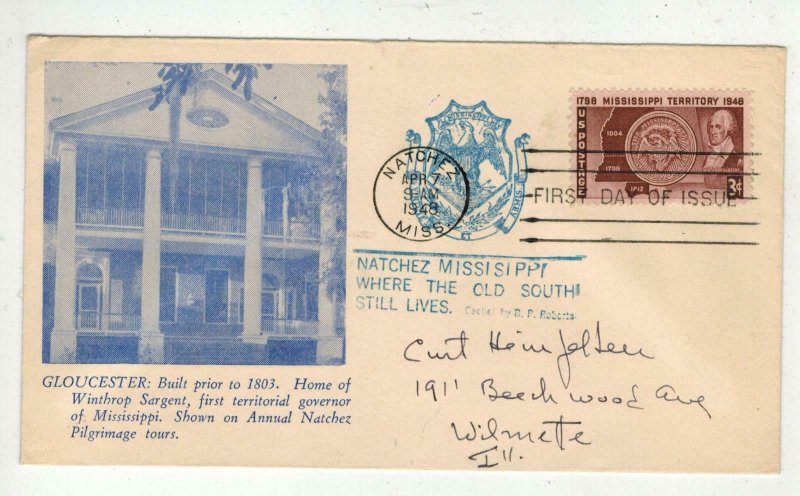 1798 MISSISSIPPI TERRITORY 1948
U S POSTAGE
1804
1798
1817
3¢
NATCHEZ
APR 7
9 AM
1948
MISS.
FIRST DAY OF ISSUE
NATCHEZ MISSISIPPI
WHERE THE OLD SOUTH
STILL LIVES. Cachet by B. P. Roberts
GLOUCESTER: Built prior to 1803. Home of
Winthrop Sargent, first territorial governor
of Mississippi. Shown on Annual Natchez
Pilgrimage tours.
Curt
1911 Beechwood Ave
Wilmette
Ill.